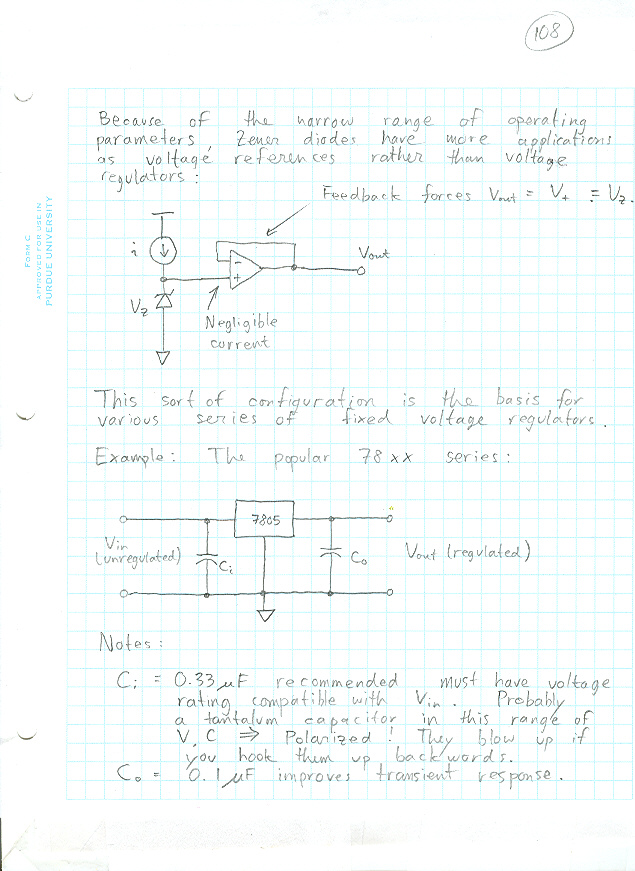 108
Because of the narrow range of operating
parameters, Zener diodes have more applications
as voltage references rather than voltage
regulators:
Feedback forces Vout = V+ ≡ Vz.
FORM C
APPROVED FOR USE IN
PURDUE UNIVERSITY
i
Vout
-
+
Vz
Negligible
current
This sort of configuration is the basis for
various series of fixed voltage regulators.
Example: The popular 78xx series:
7805
Vin
(unregulated)
Ci
Co
Vout (regulated)
Notes:
Ci = 0.33 μF recommended must have voltage
rating compatible with Vin. Probably
a tantalum capacitor in this range of
V, C ⇒ Polarized! They blow up if
you hook them up backwords.
Co = 0.1 μF improves transient response.